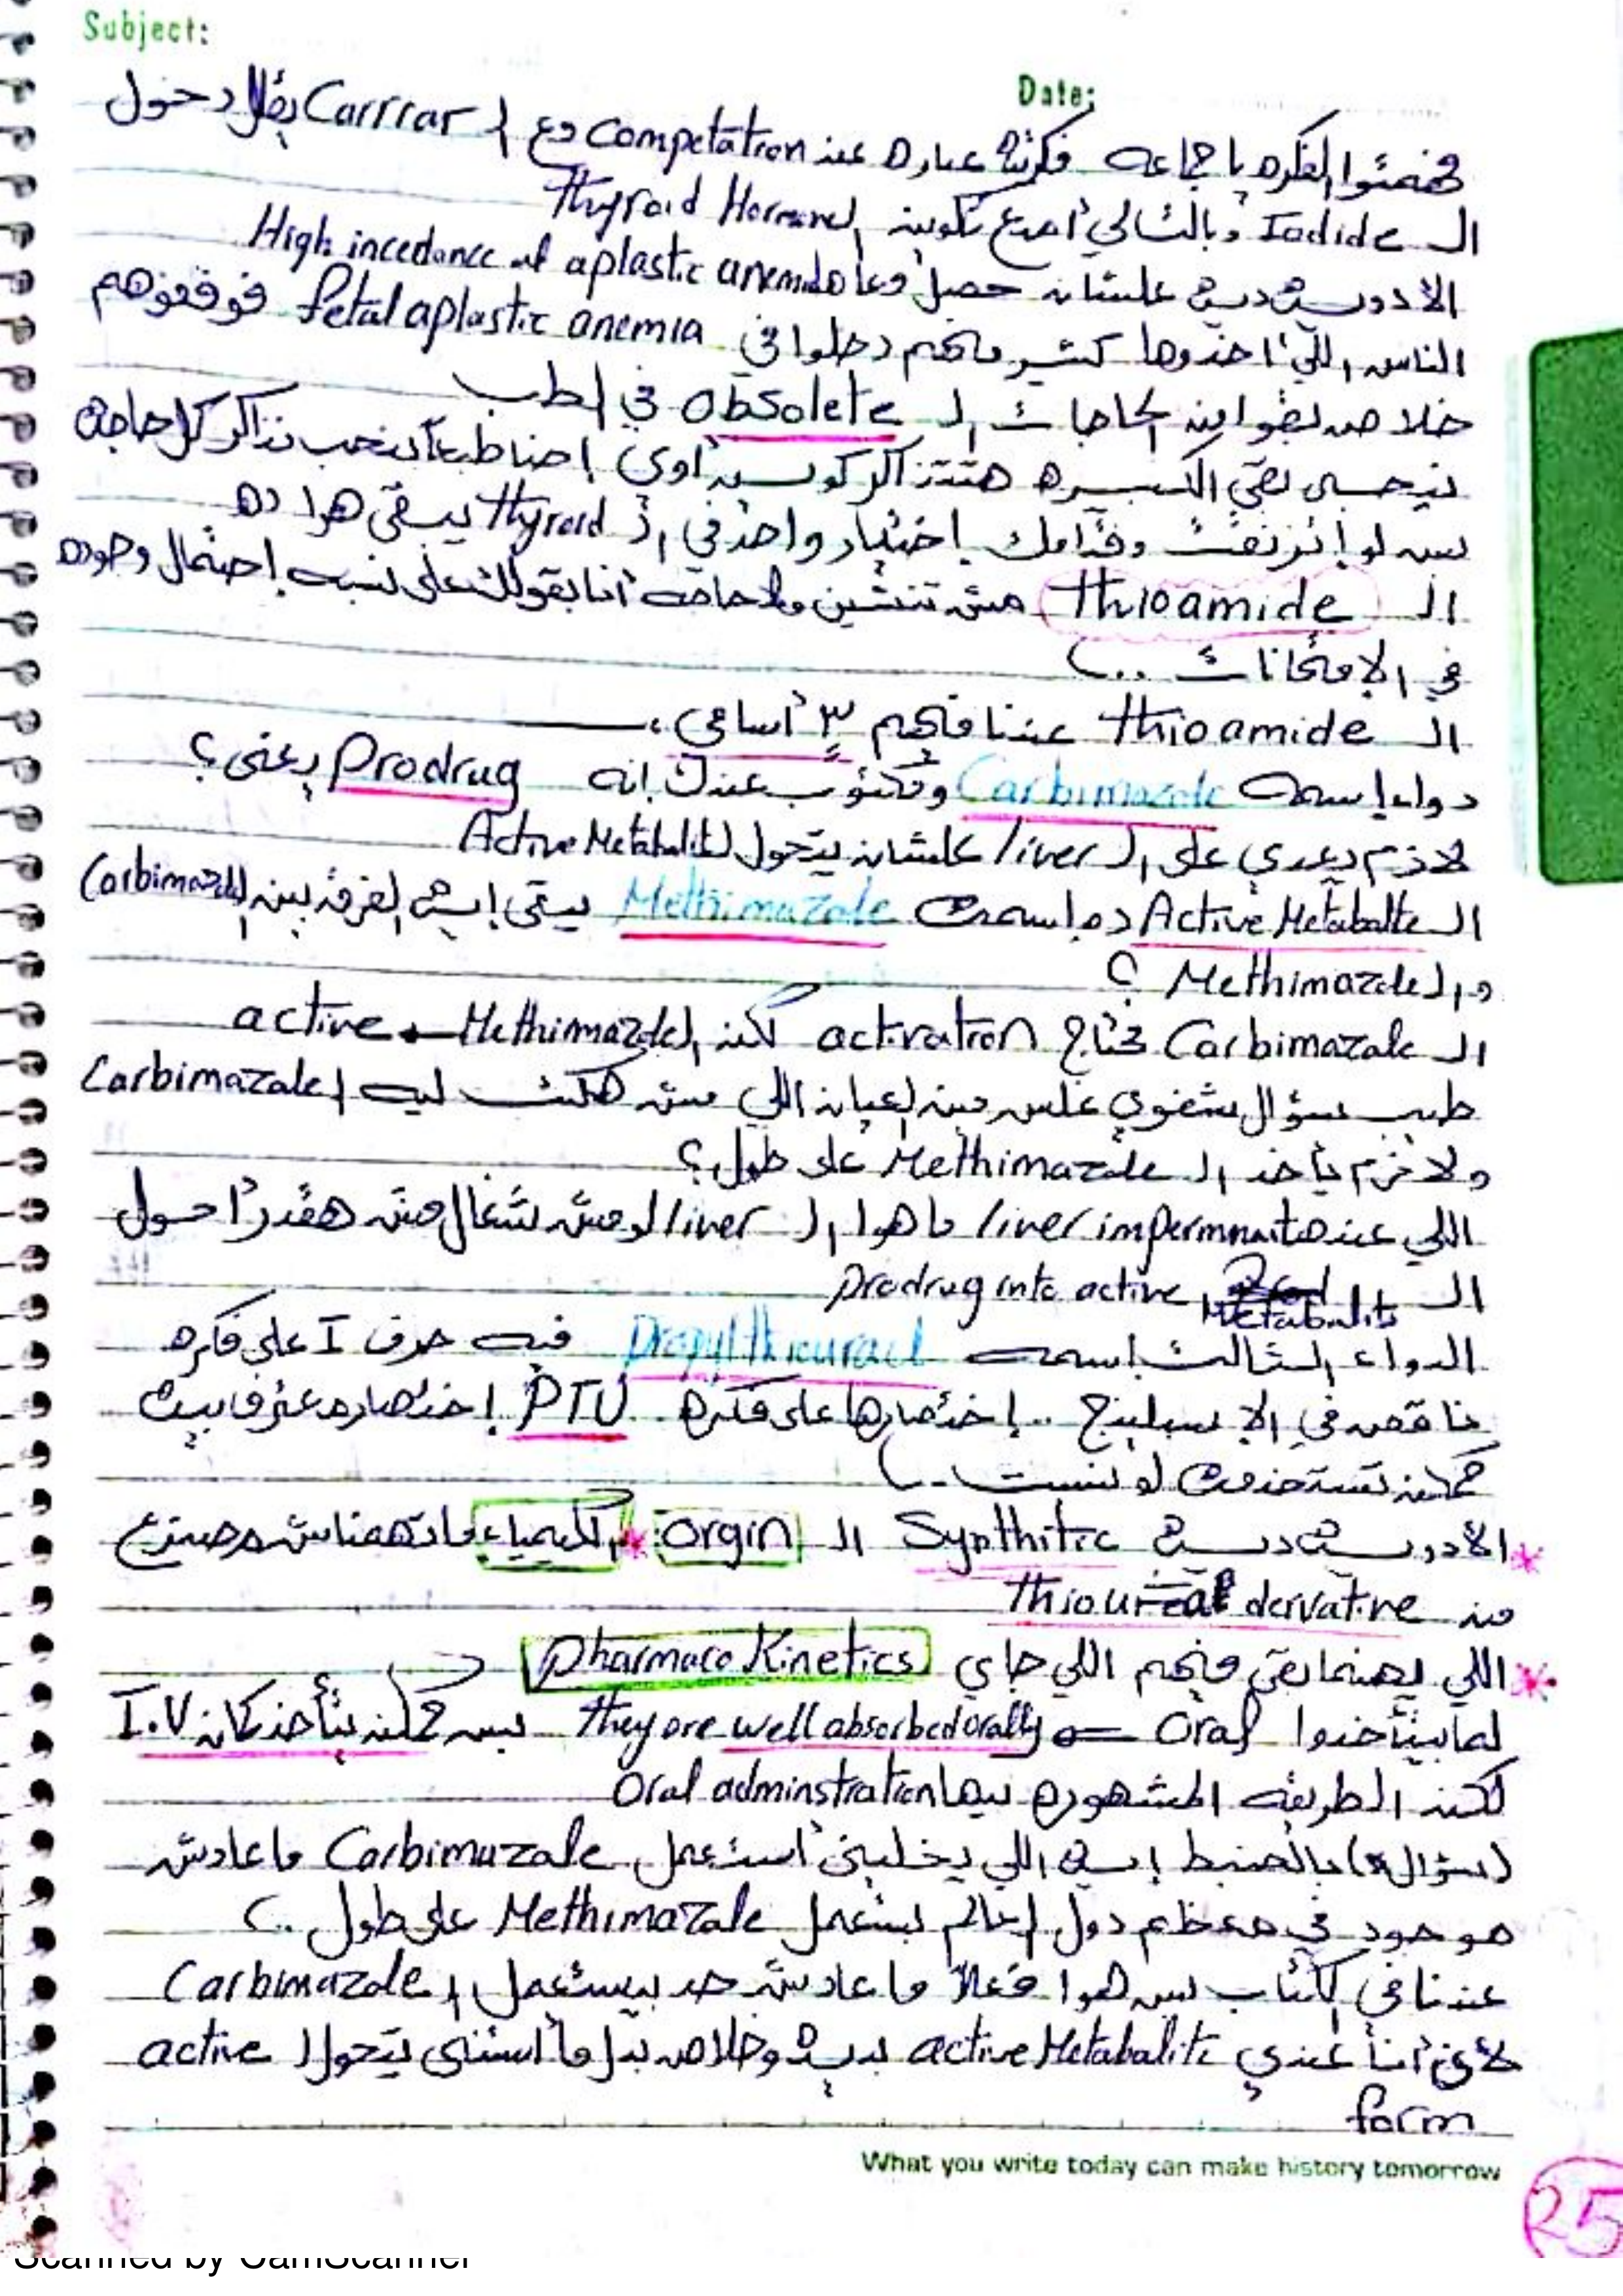 Subject:
Date:
فهمتوا الفكره يا جماعه فكرته عباره عن Competation مع ال Carrrar يقلل دخول
ال Iodide وبالتالي أمنع تكوين ال Thyroid Hormone
الادويه ديه علشان حصل معاها High incedance of aplastic anemia
الناس اللي اخدوها كتير منهم دخلوا في fetal aplastic anemia فوقفوهم
خلاص بقوا من الحاجات ال obsolete في الطب
نيجي بقى الكبيره هتتذاكر كويس أوي إحنا طبعاً بنحب نذاكر كل حاجه
بس لو إتزنقت وقدامك إختيار واحد في ال thyroid يبقى هوا ده
ال thioamide مش تنشين ولا حاجه أنا بقولك على نسبه إحتمال وجوده
في الإمتحانات ..)
ال thioamide عندنا منهم ٣ أسامي،
دواء إسمه Carbimazole ومكتوب عندك إنه Prodrug يعني؟
لازم يعدي على ال liver علشان يتحول ل Active Metabalite
ال Active Metabalte ده إسمه Methimazole يبقى إيه الفرق بين ال Carbimazole
و ال Methimazole ؟
ال Carbimazale محتاج activation لكن ال Methimazole ← active
طيب سؤال شفوي غلس مين العيان اللي مش هكتب ليه ال Carbimazale
ولازم ياخد ال Methimazole على طول؟
اللي عنده liver impermnaite ما هوا ال liver لو مش شغال مش هقدر أحول
ال prodrug into active Metabalits
الدواء الثالث إسمه Propylthiouracil فيه حرف I على فكره
ناقص في الإسبلينج .. إختصارها على فكره PTU إختصاره عشان
ممكن تستخدمه لو نسيت ..)
* الادويه ديه Synthitic ال orgin * الكيمياء ماتهمناش مصنوع
من thiourea dervative
* اللي يهمنا بقى منهم اللي جاي pharmaco Kinetics
لما بيتأخدوا Oral they are well absorbed orally بس ممكن بتأخد كمان I.V
لكن الطريقه المشهوره ليها Oral adminstration
(سؤال) بالضبط إيه اللي يخليني أستعمل Carbimazale ماعادش
موجود في معظم دول العالم بستعمل Methimazale على طول ..)
عندنا في الكتاب بس هوا فعلاً ماعادش حد بيستعمل ال Carbimazole
لأن أنا عندي active Metabalite بديه وخلاص بدل ما أستنى يتحول ل active
form
What you write today can make history tomorrow
25
Scanned by CamScanner